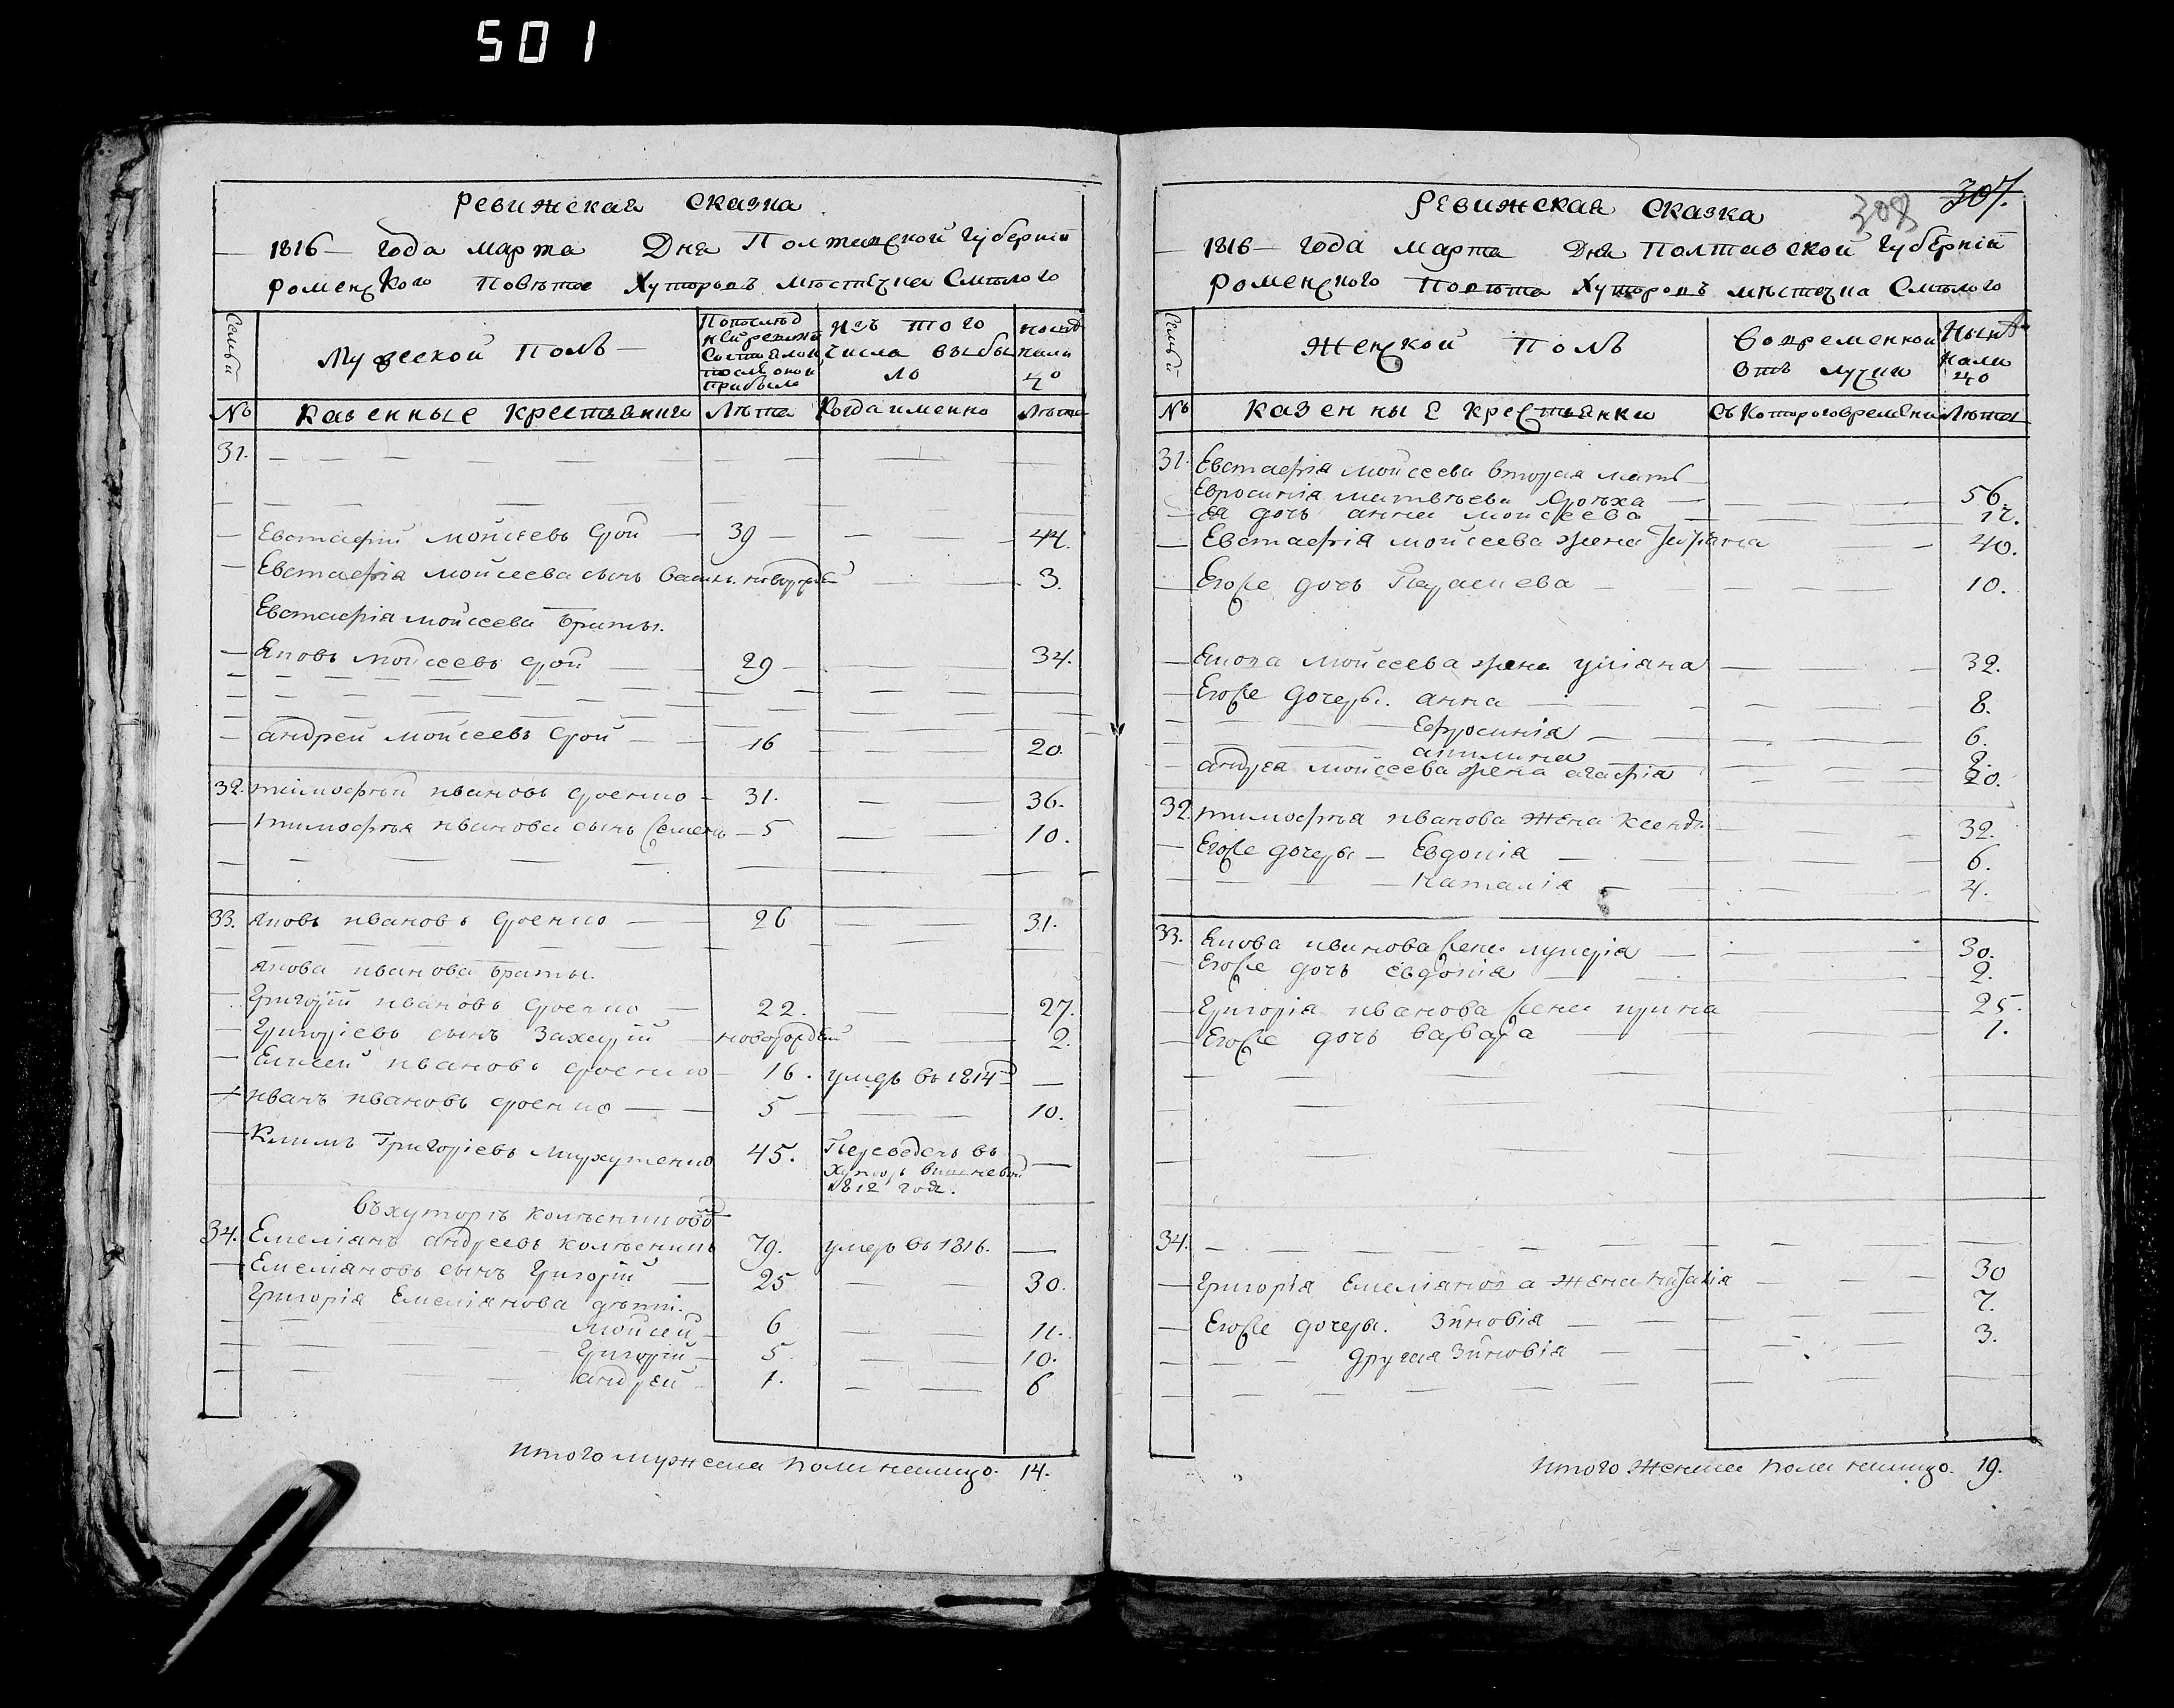 501
Ревижская сказка
1816 — года марта Дня Полтавской губернїи
роменского Повѣта Хуторовъ мѣстечка Смѣлого
Семьи
Мужеской Полъ
Попослѣд
ней ревизїи
состояло и
после оной
прибыло
Изъ того
числа выбы
ло
нынѣ
нали
цо
№ Казенные Крестьяния Лѣта Когда именно Лѣта
31.
Евстафий Мойсеевъ 39 44.
Евстафїя Мойсеева сынъ Васил. новорожден 3.
Евстафїя Мойсеева браты.
Яковъ Мойсеевъ 29 34.
андрей Мойсеевъ 16 20.
32. тимофѣй ивановъ 31. 36.
тимофѣя иванова сынъ Семенъ 5 10.
33. яковъ ивановъ 26 31.
якова иванова браты.
Григорїй ивановъ 22. 27.
Григорїевъ сынъ Захарїй новорожден 2.
Елисей ивановъ 16. умеръ въ 1814
иванъ ивановъ 5 10.
Климъ Григорїевъ 45. Переведенъ въ
хуторъ вишневой
1812 года.
въ хуторѣ колѣсниковой
34. Емелїанъ андреевъ колѣсникъ 79. умеръ въ 1816.
Емелїановъ сынъ Григорїй 25 30.
Григорїя Емелїанова дѣти.
Мойсей 6 11.
Григорїй 5. 10.
андрей 1. 6
итого мужеска пола налицо. 14.
307.
308
Ревижская сказка
1816 — года марта Дня Полтавской губернїи
роменского Повѣта Хуторовъ мѣстечка Смѣлого
Семьи
Женской Полъ
Вовременной
отлучки
Нынѣ
нали
цо
№ Казенные крестьянки съ Котораго времени Лѣта
31. Евстафїя Мойсеева вторая мать
Евросинїя матвѣева 56.
Ея дочь анна мойсеева 12.
Евстафїя мойсеева жена 40.
Егоже дочь 10.
Якова мойсеева жена улїяна 32.
Егоже дочеры. анна 8.
Ефросинїя 6.
акилина 2.
андрея мойсеева жена агафїя 20.
32. тимофѣя иванова жена ксенїя 32.
Егоже дочеры Евдокїя 6.
Наталїя 4.
33. Якова иванова жена лукерїя 30.
Егоже дочь евдокїя 2.
Григорїя иванова жена ирина 25.
Егоже дочь варвара 1.
34.
Григорїя Емелїанова жена 30
Егоже дочеры. Зиновїя 7.
другая Зиновїя 3.
итого женска пола налицо. 19.